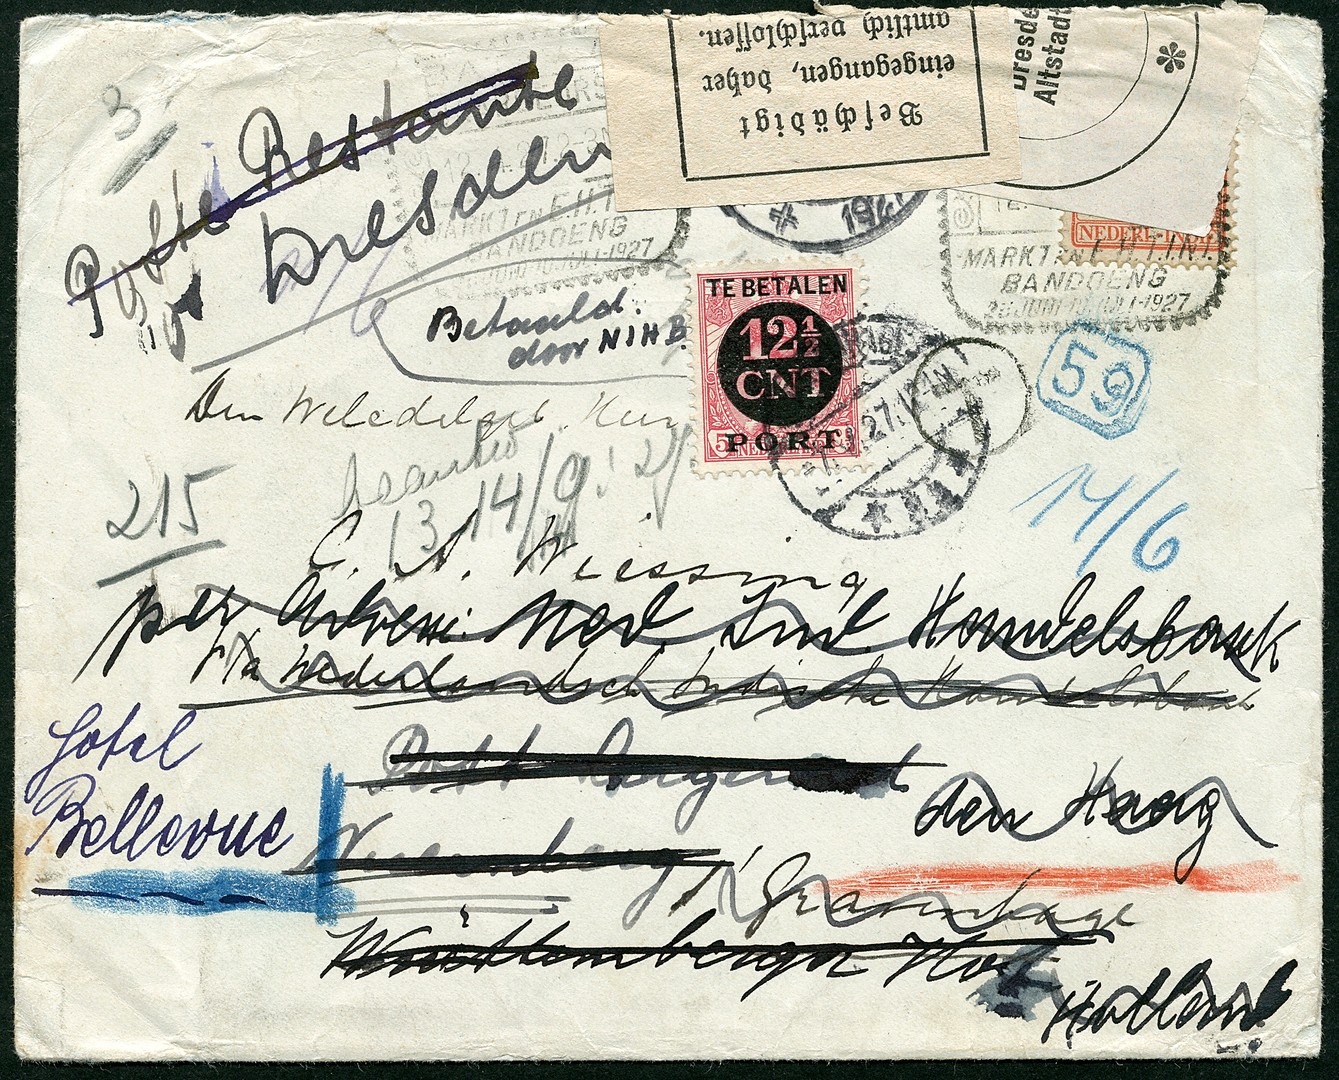 3
Poste Restante
Dresden
Beschädigt
eingegangen, daher
amtlich verschlossen.
Dresde
Altstadt
1927
12
MARKT EN E.H.T.I.N.T.
BANDOENG
JUNI-10 JULI-1927
NEDERL.INDIË
MARKT EN E.H.T.I.N.I.
BANDOENG
JUNI-10 JULI-1927
Betaald
door NIHB.
TE BETALEN
12½
CNT
PORT
59
Den Weledelgeb. Heer
215
13 14/9
14/6
C. A. Wiessing
per Adres: Ned. Ind. Handelsbank
p/a Nederlandsch Indische Handelsbank
Hotel
Bellevue
Post
den Haag
Nürnberg
's Gravenhage
Württemberger Hof
Holland